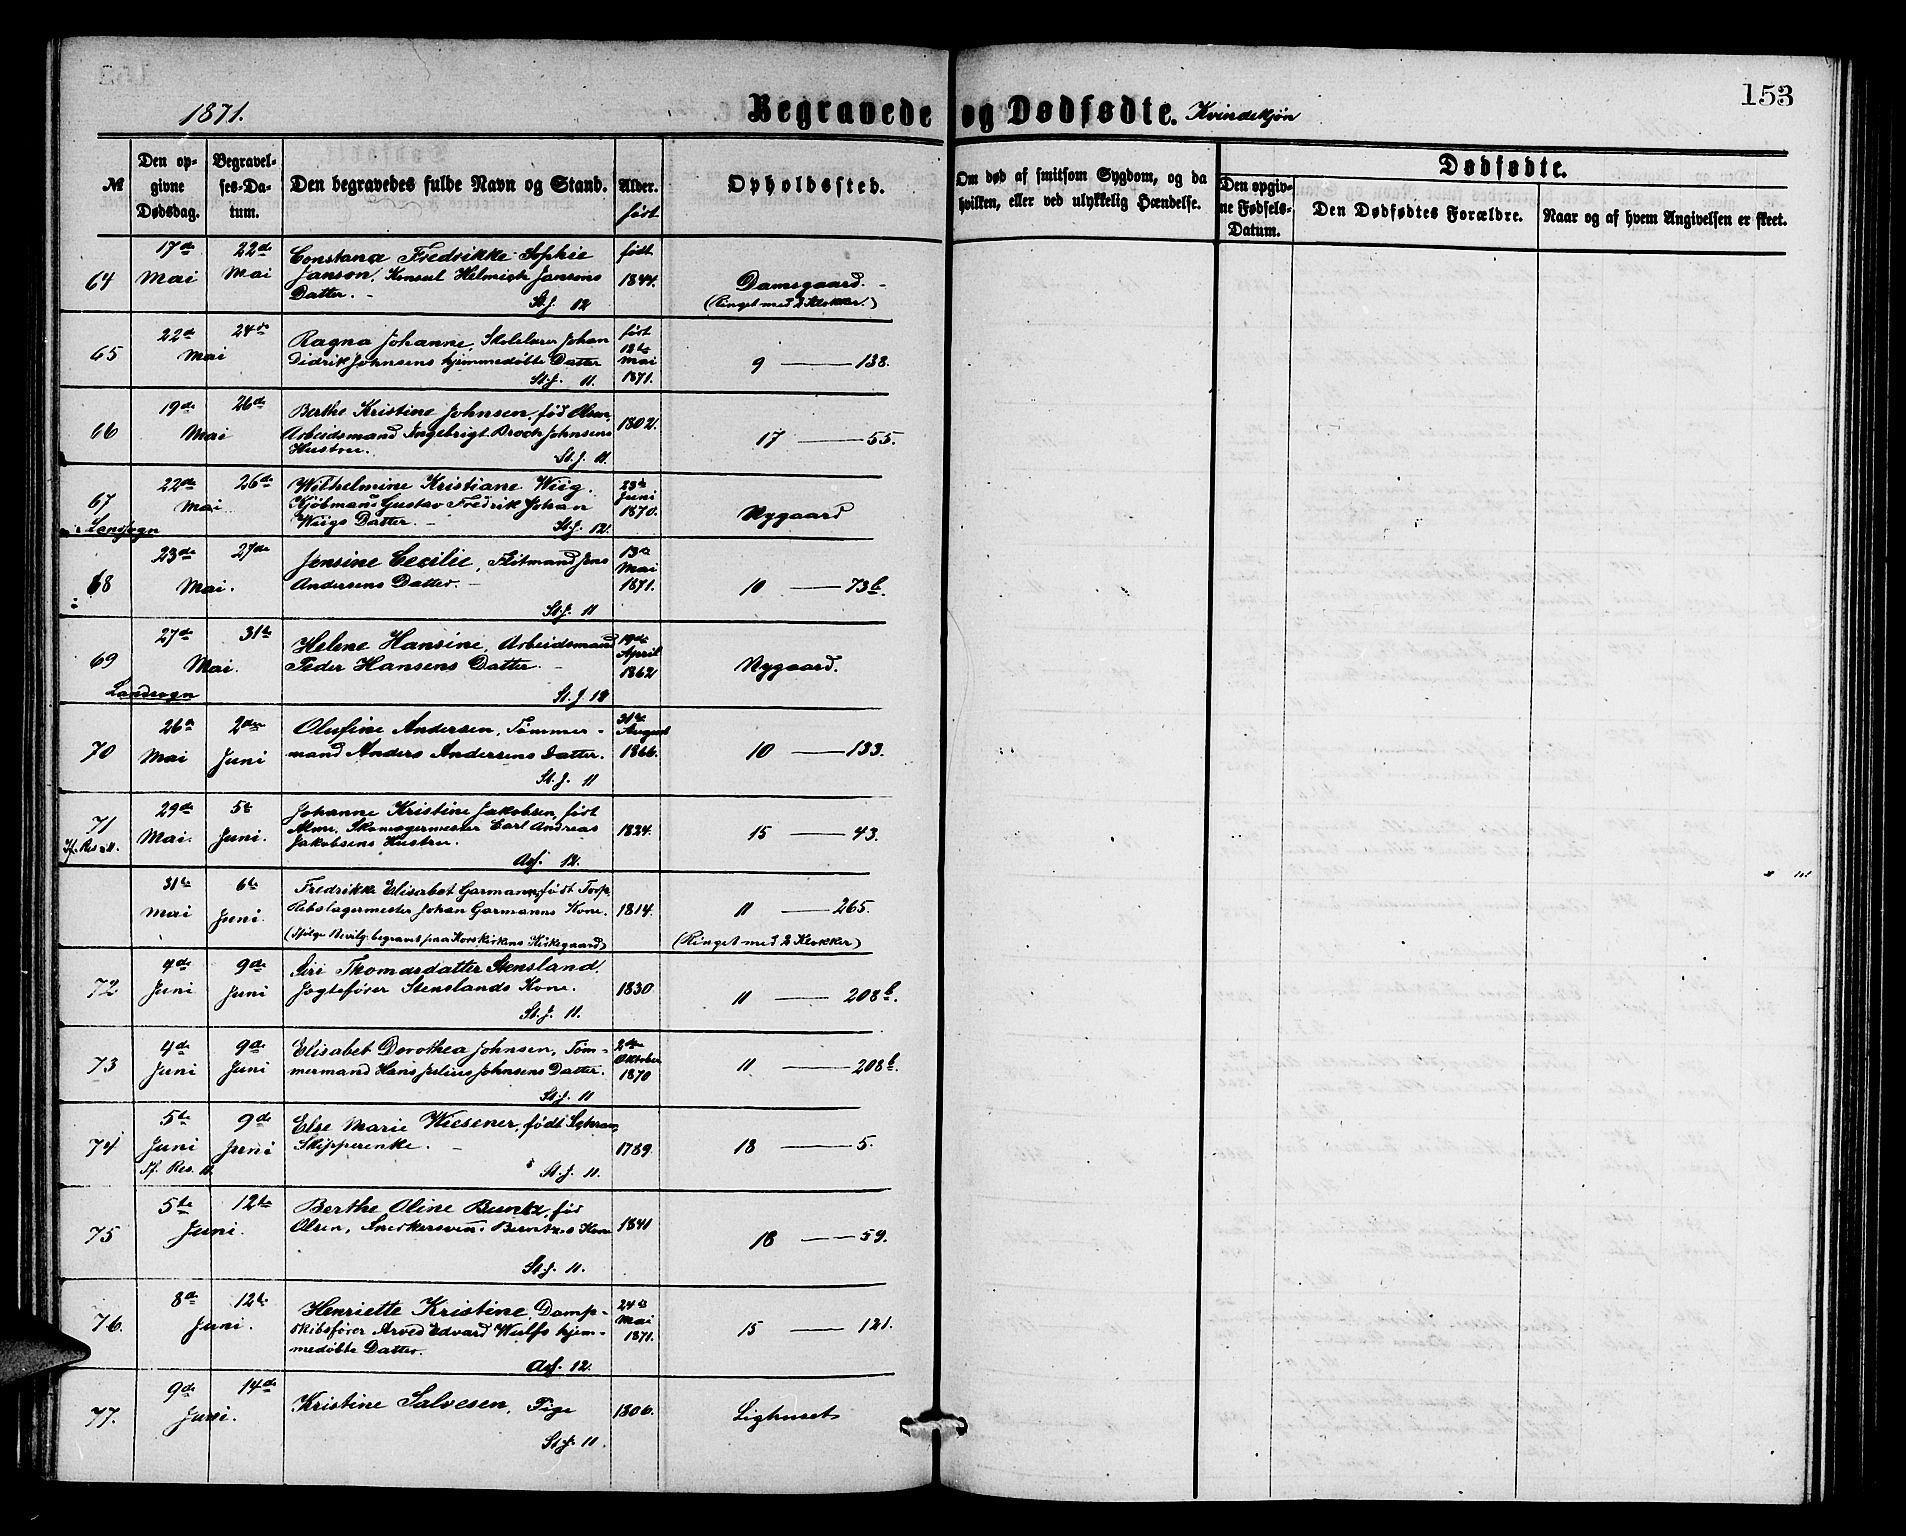 1871.
Begravede og Dødfødte. Kvindekjøn
153
№
Den opgivne Dødsdag.
Begravelses-Datum.
Den begravedes fulde Navn og Stand.
Alder.
født
Opholdssted.
Om død af smitsom Sygdom, og da
hvilken, eller ved ulykkelig Hændelse.
Dødfødte.
Den opgivne Fødsels-Datum.
Den Dødfødtes Forældre.
Naar og af hvem Angivelsen er skeet.
64
17de Mai
22de Mai
Constance Fredrikke Sophie
Janson, Konsul Helmich Jansons
Datter.
St. J. 12
født 1844.
Damsgaard.
(Ringet med 2 Klokker.)
65
22de 24de
Mai
Ragna Johanne, Skolelærer Johan
Didrik Johnsens hjemmedøbte Datter
St. J. 11.
født 12te Mai 1871.
9 — 138.
66
19de 26de
Mai
Berthe Kristine Johnsen, fød Olsen,
Arbeidsmand Ingebrigt Broch Johnsens
Hustru.
St. J. 11.
1802.
17 — 55.
67
22de 26de
Mai
Wilhelmine Kristiane Wiig.
Kjøbmand Gustav Fredrik Johan
Wiigs Datter.
St. J. 12.
23de Juni 1870.
Nygaard
Landsogn
68
23de 27de
Mai.
Jensine Cecilie, Flötmand Jens
Andersens Datter.
St. J. 11
13de Mai 1871.
10 — 73b.
69
27de 31te
Mai.
Helene Hansine, Arbeidsmand
Peder Hansens Datter.
St. J. 12
19de April 1862
Nygaard.
Landsogn
70
26de Mai
2den Juni
Olufine Andersen, Tømmer-
mand Anders Andersens Datter.
St. J. 11
31te August 1866.
10 — 133.
71
If. Res.
29de Mai.
5te Juni.
Johanne Kristine Jakobsen, født
Skomagermester Carl Andreas
Jakobsens Hustru.
Asf. 12.
1824.
15 — 43.
31te Mai
6te Juni.
Fredrikke Elisabet Garmann, født Torp,
Rebslagermester Johan Garmanns Kone.
(Ifølge Bevilg. begravet paa Korskirkens Kirkegaard)
1814.
11 — 265.
(Ringet med 2 Klokker)
72
4de Juni
9de Juni
Siri Thomasdatter Stensland.
Fogtefører Stenslands Kone.
St. J. 11.
1830
11 — 208b.
73
4de Juni
9de Juni
Elisabet Dorothea Johnsen, Tøm-
mermand Hans Julius Johnsens Datter.
St. J. 11
2den Oktober 1870
11 — 208b.
74
5te Juni
If. Res. 11.
9de Juni
Else Marie Wiesener, født Schram,
Skipperenke.
St. J. 11.
1789.
18 — 5.
75
5te 12te
Juni.
Berthe Oline Buntz, fød
Olsen, Snedkersvend Buntzes Kone
St. J. 11.
1841
18 — 59.
76.
8de 12te
Juni.
Henriette Kristine, Damp-
skibsfører Arved Edvard Wulfs hjem-
medøbte Datter.
Asf. 12.
24de Mai 1871.
15 — 121.
77.
9de 14de
Juni.
Kristine Salvesen, Pige
St. J. 11.
1806.
Lighuset